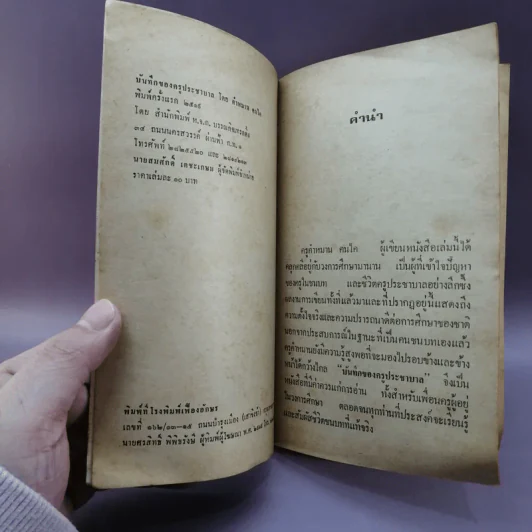 บันทึกของครูประชาบาล โดย คำหมาน คนไค
พิมพ์ครั้งแรก ๒๕๑๙
โดย สำนักพิมพ์ บรรณกิจเทรดดิ้ง
๓๔ ถนนนครสวรรค์ ผ่านฟ้า ก.ท. ๑
โทรศัพท์ ๒๘๒๕๕๒๐ และ
นายสมศักดิ์ เตชะเกษม ผู้จัดพิมพ์จำหน่าย
ราคาเล่มละ ๑๐ บาท
พิมพ์ที่โรงพิมพ์เฟื่องอักษร
เลขที่ ๑๖๒/ ถนนบำรุงเมือง (เสาชิงช้า)
นายศรสิทธิ์ พิพิธรังษี ผู้พิมพ์ผู้โฆษณา พ.ศ.
คำนำ
ครูคำหมาน คนไค ผู้เขียนหนังสือเล่มนี้ได้
คลุกคลีอยู่กับวงการศึกษามานาน เป็นผู้ที่เข้าใจปัญหา
ของครูในชนบท และชีวิตครูประชาบาลอย่างลึกซึ้ง
ผลงานการเขียนทั้งที่แล้วมาและที่ปรากฏอยู่นี้แสดงถึง
ความตั้งใจจริงและความปรารถนาดีต่อการศึกษาของชาติ
นอกจากประสบการณ์ในฐานะที่เป็นคนชนบทเองแล้ว
ครูคำหมานยังมีความรู้สูงพอที่จะมองไปรอบข้างและข้าง
หน้าได้กว้างไกล "บันทึกของครูประชาบาล" จึงเป็น
หนังสือที่มีค่าควรแก่การอ่าน ทั้งสำหรับเพื่อนครูผู้อยู่
ในวงการศึกษา ตลอดจนทุกท่านที่ประสงค์จะเรียนรู้
และสัมผัสชีวิตชนบทที่แท้จริง